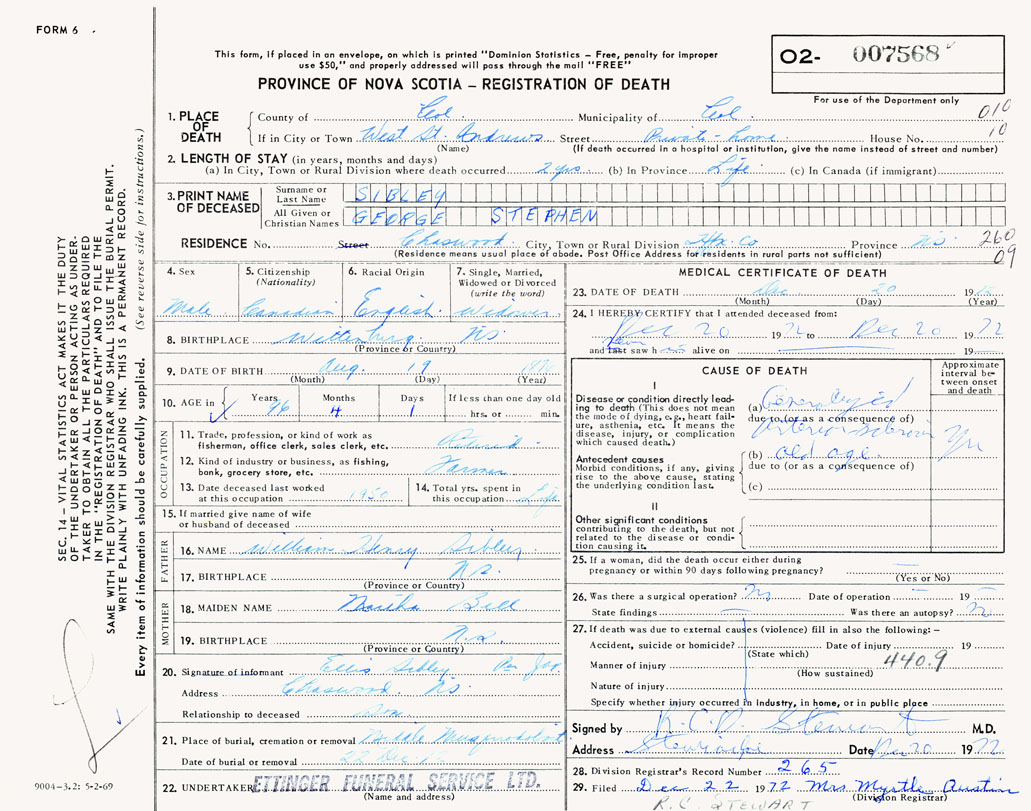 FORM 6
This form, if placed in an envelope, on which is printed "Dominion Statistics – Free, penalty for improper
use $50," and properly addressed will pass through the mail "FREE"
PROVINCE OF NOVA SCOTIA – REGISTRATION OF DEATH
02- 007568
For use of the Department only
010
10
1. PLACE OF DEATH
County of Col. Municipality of Col.
If in City or Town West St. Andrews Street Private - home House No.
(Name) (If death occurred in a hospital or institution, give the name instead of street and number)
2. LENGTH OF STAY (in years, months and days)
(a) In City, Town or Rural Division where death occurred 2 yrs (b) In Province Life (c) In Canada (if immigrant)
3. PRINT NAME OF DECEASED
Surname or Last Name SIBLEY
All Given or Christian Names GEORGE STEPHEN
RESIDENCE No. Street Chaswood City, Town or Rural Division Hfx. Co Province NS
260
09
(Residence means usual place of abode. Post Office Address for residents in rural parts not sufficient)
4. Sex
Male
5. Citizenship
(Nationality)
Canadian
6. Racial Origin
English
7. Single, Married,
Widowed or Divorced
(write the word)
Widower
8. BIRTHPLACE Wittenburg NS
(Province or Country)
9. DATE OF BIRTH Aug. 19
(Month) (Day) (Year)
10. AGE in
Years 96
Months 4
Days 1
If less than one day old
hrs. or min.
OCCUPATION
11. Trade, profession, or kind of work as
fisherman, office clerk, sales clerk, etc. Retired
12. Kind of industry or business, as fishing,
bank, grocery store, etc. Farmer
13. Date deceased last worked
at this occupation 1950
14. Total yrs. spent in
this occupation Life
15. If married give name of wife
or husband of deceased
FATHER
16. NAME William Henry Sibley
17. BIRTHPLACE N.S.
(Province or Country)
MOTHER
18. MAIDEN NAME Martha Bell
19. BIRTHPLACE N.S.
(Province or Country)
20. Signature of informant Ellis Sibley
Address Chaswood. NS.
Relationship to deceased son
21. Place of burial, cremation or removal Middle Musquodoboit
Date of burial or removal 22 Dec
22. UNDERTAKER ETTINGER FUNERAL SERVICE LTD.
(Name and address)
MEDICAL CERTIFICATE OF DEATH
23. DATE OF DEATH Dec 20 19
(Month) (Day) (Year)
24. I HEREBY CERTIFY that I attended deceased from:
Dec 20 1972 to Dec 20 1972
and last saw h alive on 19
CAUSE OF DEATH
Approximate interval between onset and death
I
Disease or condition directly leading
to death (This does not mean
the mode of dying, e.g., heart failure,
asthenia, etc. It means the
disease, injury, or complication
which caused death.)
(a) Generalized
due to (or as a consequence of)
arteriosclerosis Yrs
Antecedent causes
Morbid conditions, if any, giving
rise to the above cause, stating
the underlying condition last.
(b) old age.
due to (or as a consequence of)
(c)
II
Other significant conditions
contributing to the death, but not
related to the disease or condition
causing it.
25. If a woman, did the death occur either during
pregnancy or within 90 days following pregnancy? —
(Yes or No)
26. Was there a surgical operation? No Date of operation — 19 —
State findings — Was there an autopsy? N
27. If death was due to external causes (violence) fill in also the following: –
Accident, suicide or homicide? Date of injury 19
(State which)
Manner of injury 440.9
(How sustained)
Nature of injury
Specify whether injury occurred in industry, in home, or in public place
Signed by R.C.D. Stewart M.D.
Address Stewiacke Date Dec 20 1972
28. Division Registrar's Record Number 265
29. Filed Dec 22 1972 Mrs Myrtle Austin
(Division Registrar)
R.C. STEWART
SEC. 14 – VITAL STATISTICS ACT MAKES IT THE DUTY
OF THE UNDERTAKER OR PERSON ACTING AS UNDER-
TAKER TO OBTAIN ALL THE PARTICULARS REQUIRED
IN THE "REGISTRATION OF DEATH" AND TO FILE THE
SAME WITH THE DIVISION REGISTRAR WHO SHALL ISSUE THE BURIAL PERMIT.
WRITE PLAINLY WITH UNFADING INK. THIS IS A PERMANENT RECORD.
Every item of information should be carefully supplied. (See reverse side for instructions.)
9004-3.2: 5-2-69